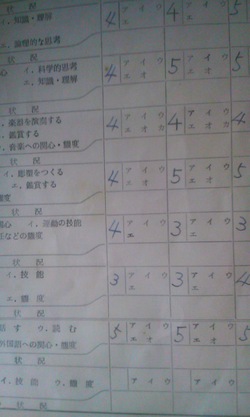 イ、知識・理解 4 アイウ 4 アイウ 5
エ エ
ニ、論理的な思考
状況
心 イ、科学的思考 4 アイウ 5 アイウ 5
エ、知識・理解 エ エ
状況
、楽器を演奏する 4 アイウ 4 アイウ 4
、鑑賞する エオカ エオカ
、音楽への関心・態度
状況
イ、彫塑をつくる 4 アイウ 5 アイウ 5
エ、鑑賞する エオ エオ
態度
状況
関心 イ、運動の技能 4 アイウ 3 アイウ 3
などの態度 エ エ
状況
イ、技能 3 アイウ 3 アイウ 4
エ エ
ニ、態度
状況
話す ウ、読む 5 アイウ 5 アイウ 5
外国語への関心・態度 エオ エオ
状況
イ、技能 ウ、態度 アイウ アイウ
状況